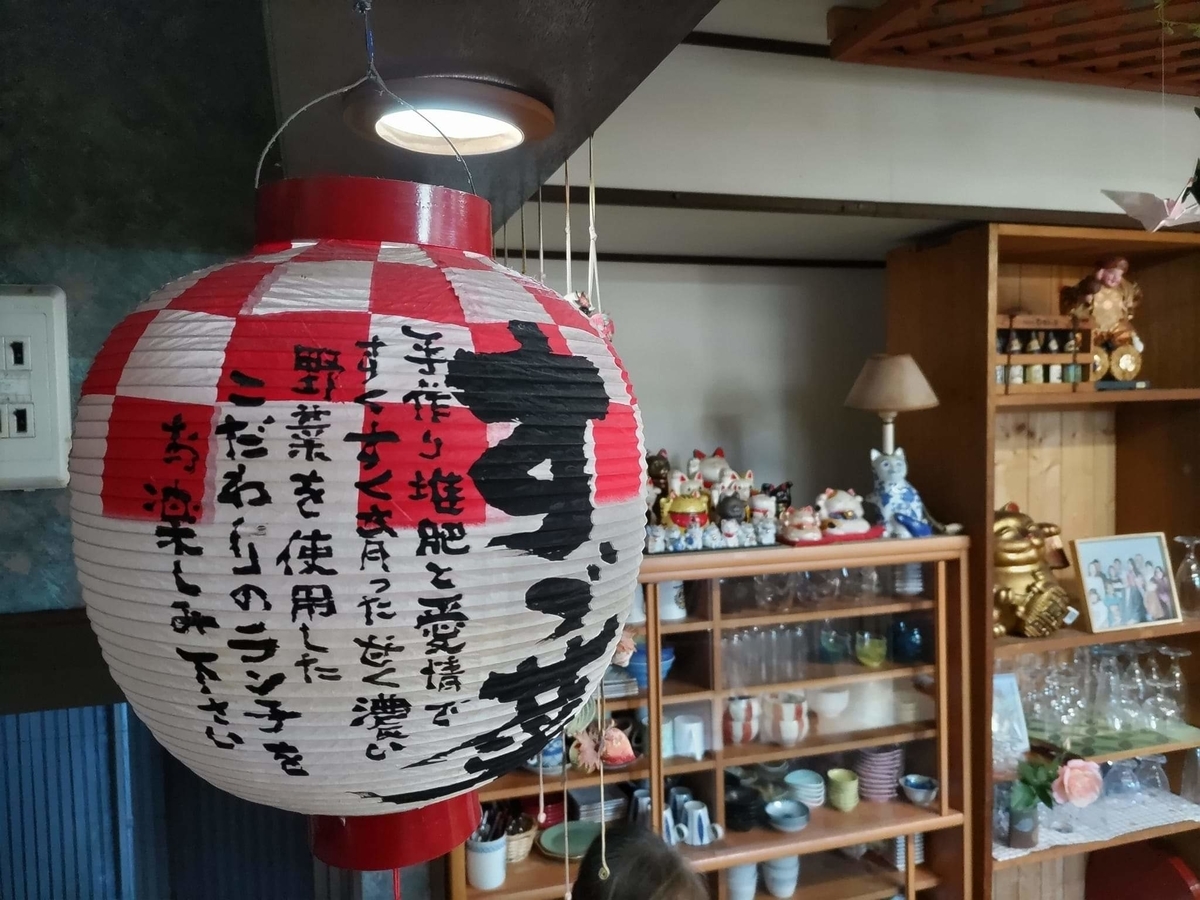 すゞ
手作り堆肥と愛情で
すくすく育った甘く濃い
野菜を使用した
こだわりのランチを
お楽しみ下さい